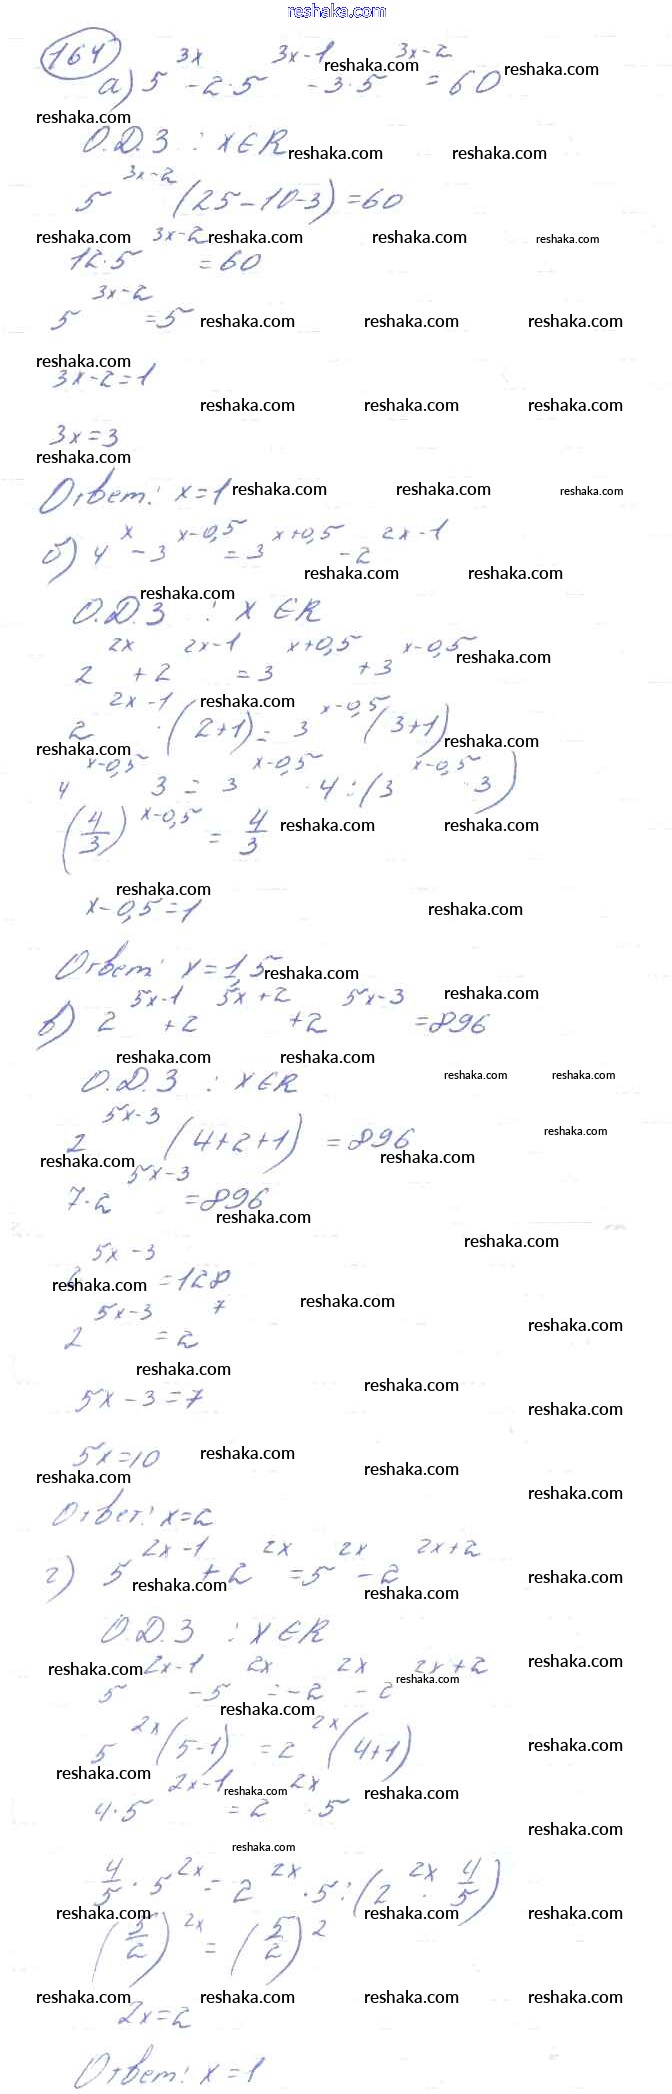 reshaka.com
164
а) 5^{3x} - 2·5^{3x-1} - 3·5^{3x-2} = 60
О.Д.З : x∈R
5^{3x-2} (25-10-3) = 60
12·5^{3x-2} = 60
5^{3x-2} = 5
3x-2=1
3x=3
Ответ: x=1
б) 4^{x} - 3^{x-0,5} = 3^{x+0,5} - 2^{2x-1}
О.Д.З : x∈R
2^{2x} + 2^{2x-1} = 3^{x+0,5} + 3^{x-0,5}
2^{2x-1} · (2+1) = 3^{x-0,5} (3+1)
4^{x-0,5} 3 = 3^{x-0,5} · 4 : (3^{x-0,5} · 3)
(4/3)^{x-0,5} = 4/3
x-0,5=1
Ответ: x=1,5
в) 2^{5x-1} + 2^{5x+2} + 2^{5x-3} = 896
О.Д.З : x∈R
2^{5x-3} (4+2+1) = 896
7·2^{5x-3} = 896
2^{5x-3} = 128
2^{5x-3} = 2^{7}
5x-3=7
5x=10
Ответ: x=2
г) 5^{2x-1} + 2^{2x} = 5^{2x} - 2^{2x+2}
О.Д.З : x∈R
5^{2x-1} - 5^{2x} = -2^{2x} - 2^{2x+2}
5^{2x} (5-1) = 2^{2x} (4+1)
4·5^{2x-1} = 2^{2x} · 5
4/5 · 5^{2x} = 2^{2x} · 5 : (2^{2x} · 4/5)
(5/2)^{2x} = (5/2)^{2}
2x=2
Ответ: x=1